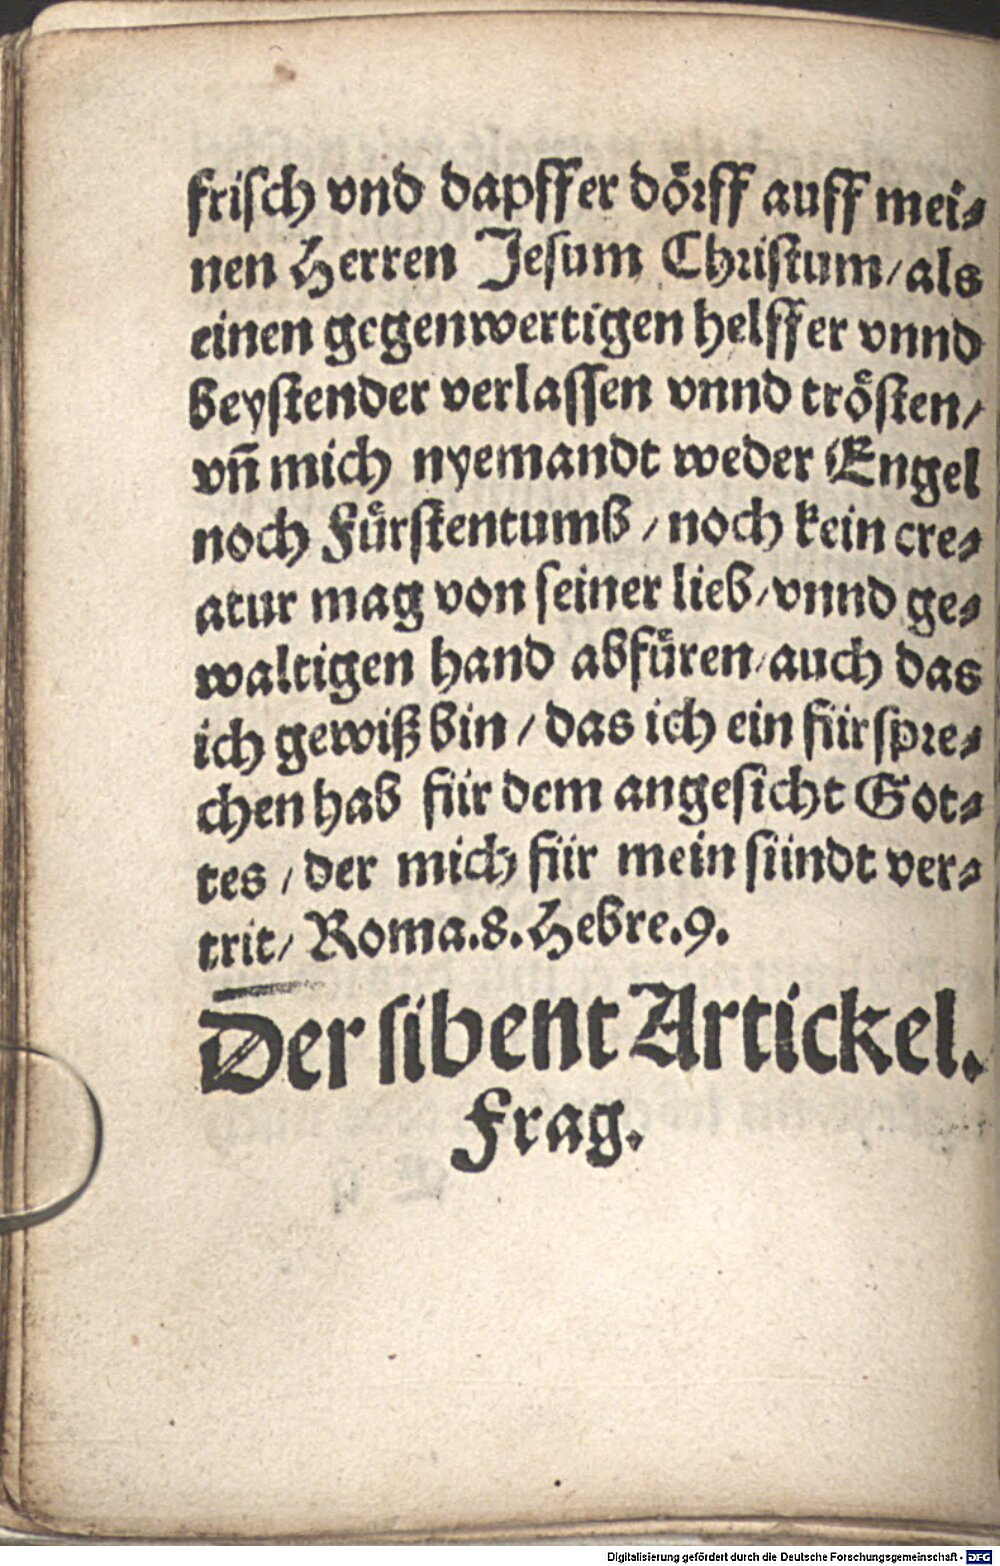 friſch vnd dapffer dörff auff mei⸗
nen Herren Jeſum Chriſtum/als
einen gegenwertigen helffer vnnd
beyſtender verlaſſen vnnd tröſten/
vn̄ mich nyemandt weder Engel
noch Fürſtentumß/noch kein cre⸗
atur mag von ſeiner lieb/vnnd ge⸗
waltigen hand abfüren/auch das
ich gewiß bin/das ich ein fürſpre⸗
chen hab für dem angeſicht Got⸗
tes/der mich für mein ſündt ver⸗
trit/Roma.8.Hebre.9.
Der ſibent Artickel.
Frag.
Digitalisierung gefördert durch die Deutsche Forschungsgemeinschaft - DFG